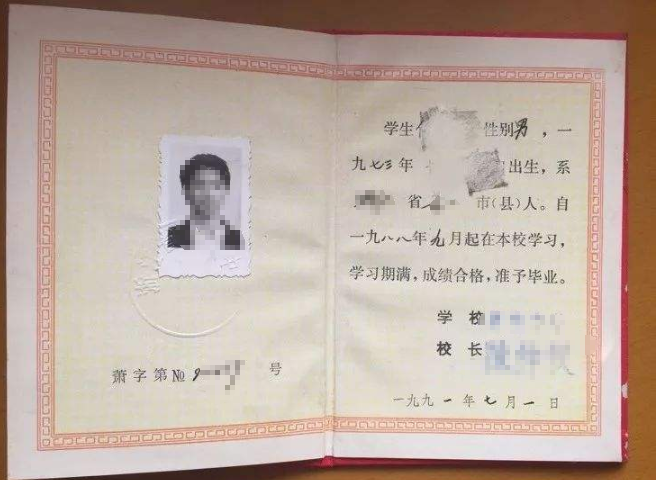 萧字第№ 号
学生 性别男，一
九七三年 出生，系
省 市(县)人。自
一九八八年九月起在本校学习，
学习期满，成绩合格，准予毕业。
学校
校长
一九九一年七月一日